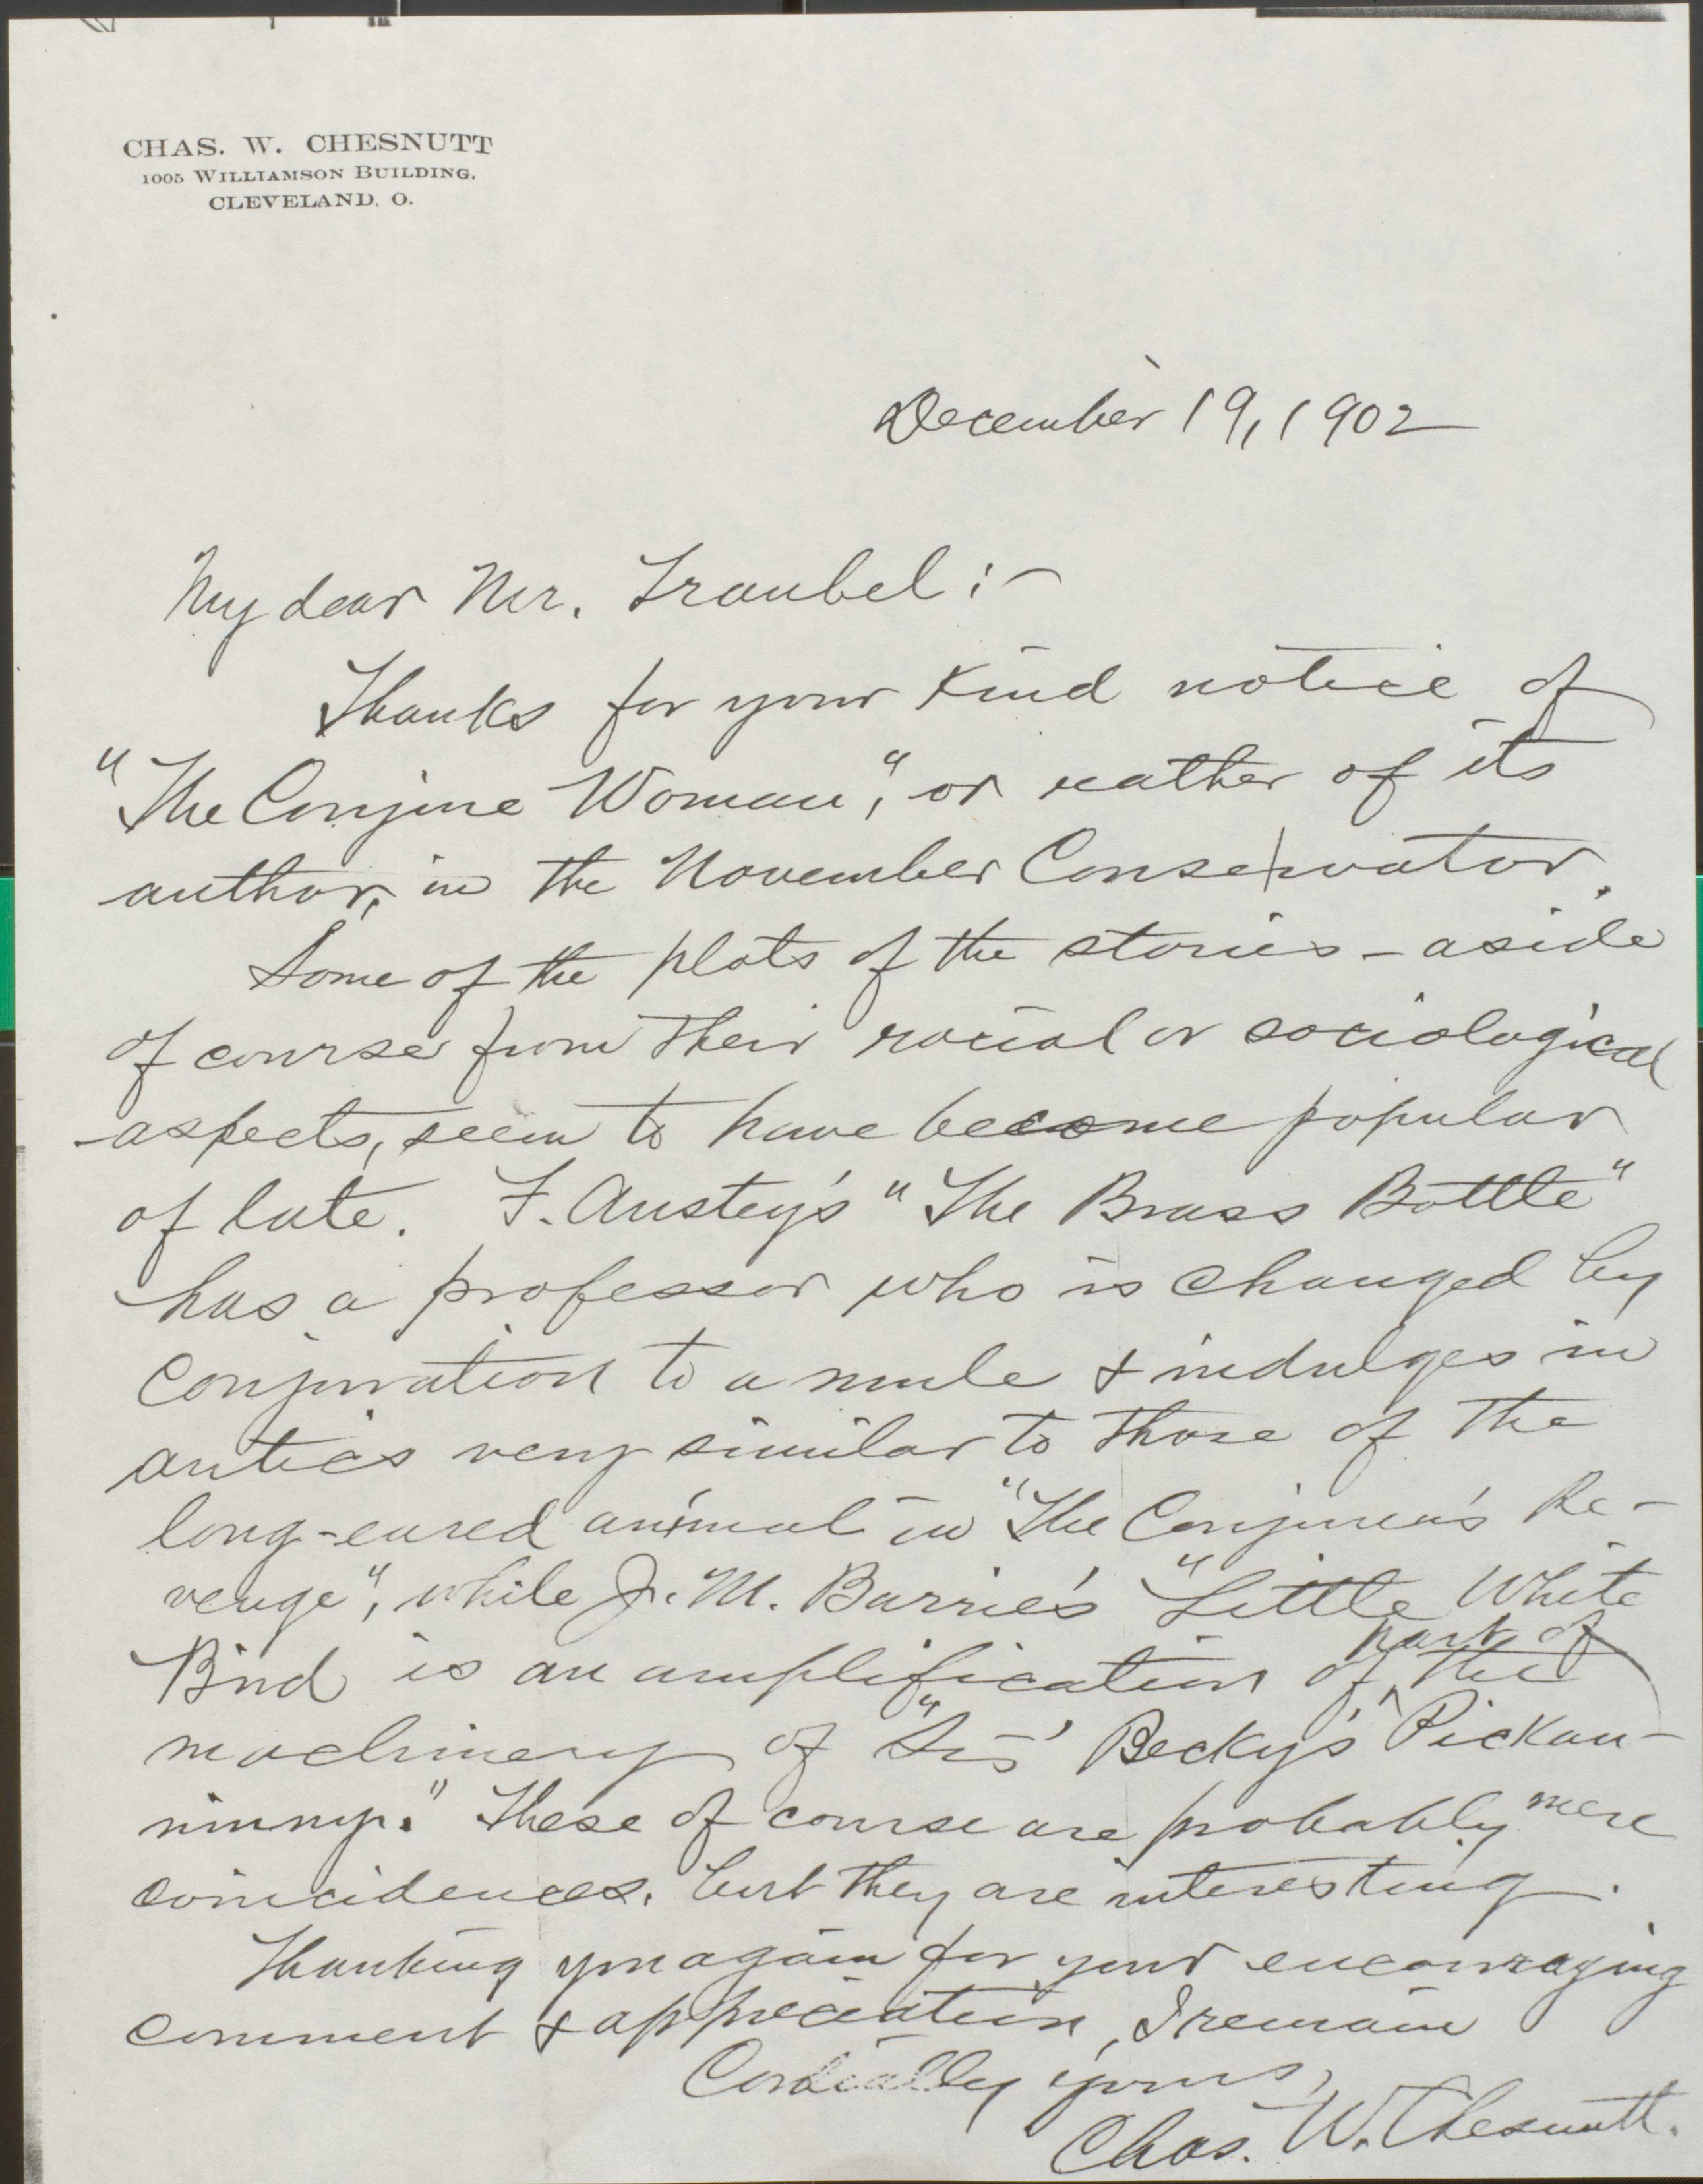 CHAS. W. CHESNUTT
1005 WILLIAMSON BUILDING.
CLEVELAND, O.
December 19, 1902
My dear Mr. Traubel:-
Thanks for your kind notice of
"The Conjure Woman," or rather of its
author, in the November Conservator.
Some of the plots of the stories - aside
of course from their racial or sociological
aspects, seem to have become popular
of late. F. Anstey's "The Brass Bottle"
has a professor who is changed by
conjuration to a mule & indulges in
antics very similar to those of the
long-eared animal in "The Conjurer's Re-
venge", while J. M. Barrie's "Little White
Bird is an amplification of part of the
machinery of "Sis' Becky's Pickan-
ninny." These of course are probably mere
coincidences, but they are interesting.
Thanking you again for your encouraging
comment & appreciation, I remain
Cordially yours,
Chas. W. Chesnutt.